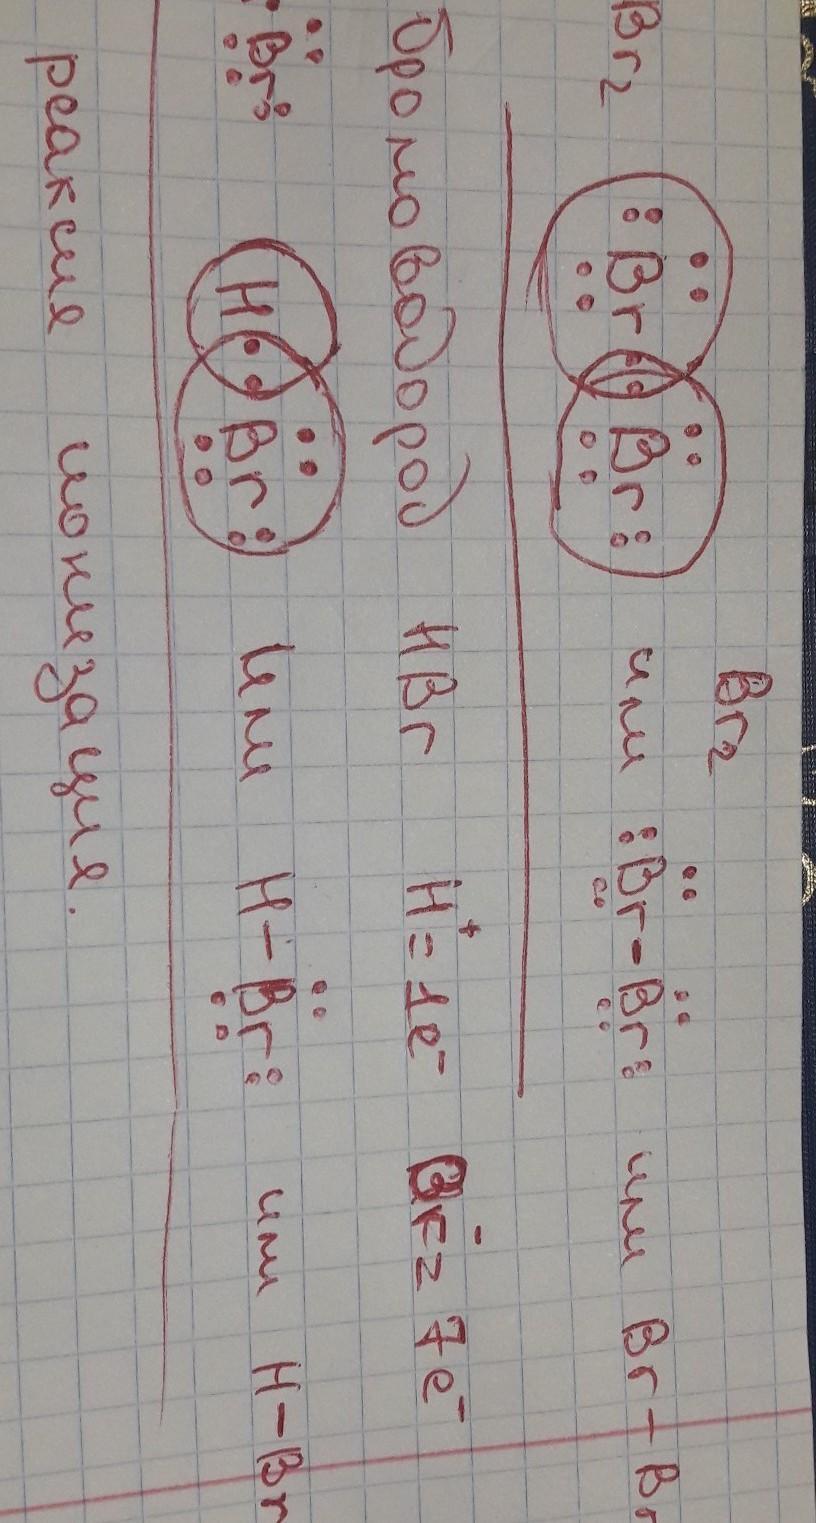 Br₂
Br₂ :Br:Br: или :Br-Br: или Br-Br
бромоводород HBr H⁺=1e⁻ Br⁻= 7e⁻
Br: H:Br: или H-Br: или H-Br
реакция ионизация.